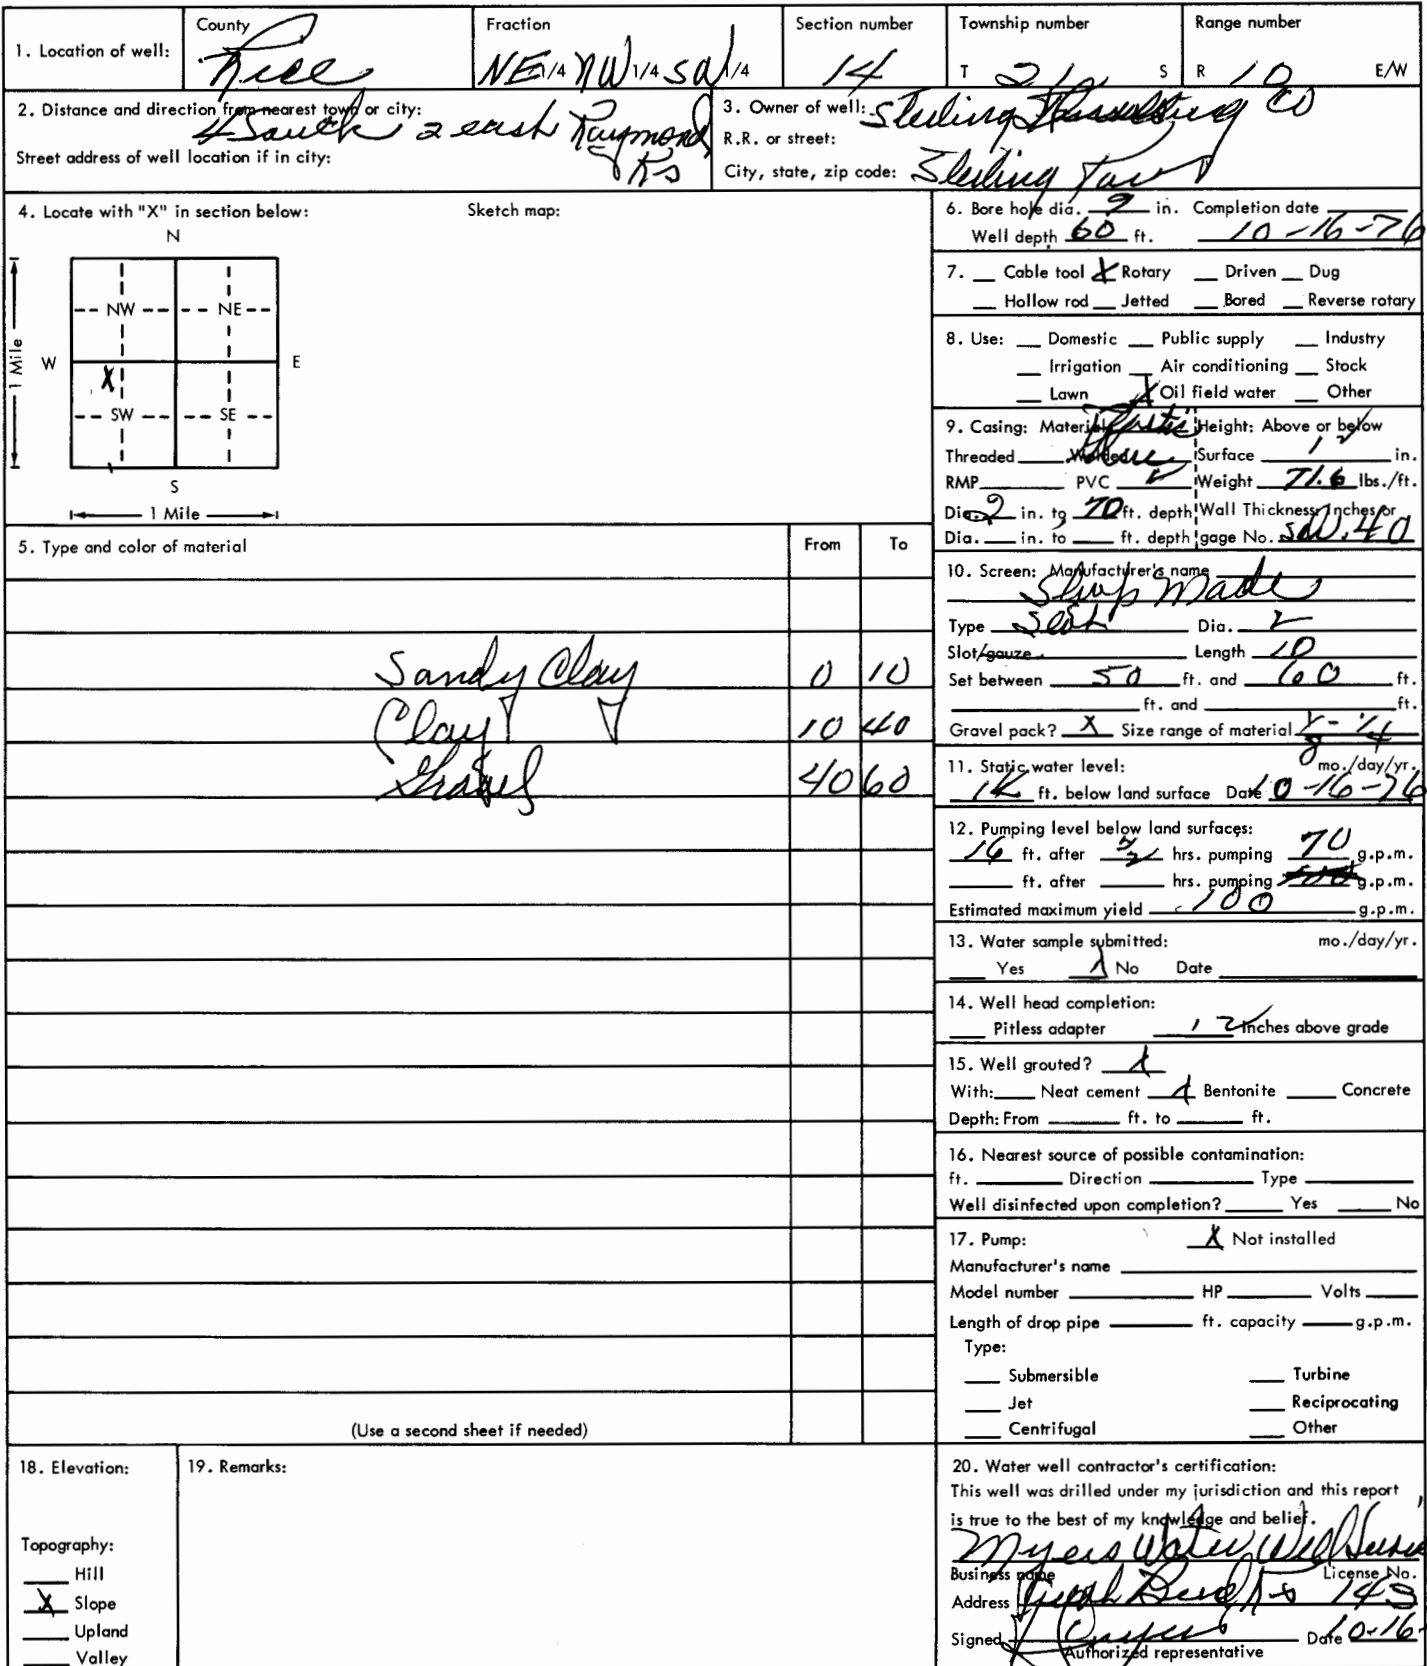 1. Location of well:
County
Rice
Fraction
NE 1/4 NW 1/4 SW 1/4
Section number
14
Township number
T 21 S
Range number
R 10 E/W
2. Distance and direction from nearest town or city:
4 South 2 east Raymond
Ks
Street address of well location if in city:
3. Owner of well: Sterling Co
R.R. or street:
City, state, zip code: Sterling
4. Locate with "X" in section below:
Sketch map:
N
NW NE
W E
1 Mile
X
SW SE
S
1 Mile
6. Bore hole dia. 9 in. Completion date
Well depth 60 ft. 10-16-76
7. Cable tool X Rotary Driven Dug
Hollow rod Jetted Bored Reverse rotary
8. Use: Domestic Public supply Industry
Irrigation Air conditioning Stock
Lawn X Oil field water Other
9. Casing: Material Plastic Height: Above or below
Threaded Welded Surface 12 in.
RMP PVC Weight 71.6 lbs./ft.
Dia. in. to 70 ft. depth Wall Thickness: Inches or
Dia. in. to ft. depth gage No. 40
5. Type and color of material From To
Sandy Clay 0 10
Clay 10 40
Gravel 40 60
(Use a second sheet if needed)
10. Screen: Manufacturer's name
Shop Made
Type Dia.
Slot/gauze Length 10
Set between 50 ft. and 60 ft.
ft. and ft.
Gravel pack? X Size range of material
11. Static water level: mo./day/yr.
ft. below land surface Date 10-16-76
12. Pumping level below land surfaces:
16 ft. after hrs. pumping 70 g.p.m.
ft. after hrs. pumping g.p.m.
Estimated maximum yield 100 g.p.m.
13. Water sample submitted: mo./day/yr.
Yes X No Date
14. Well head completion:
Pitless adapter 12 inches above grade
15. Well grouted? X
With: Neat cement X Bentonite Concrete
Depth: From ft. to ft.
16. Nearest source of possible contamination:
ft. Direction Type
Well disinfected upon completion? Yes No
17. Pump: X Not installed
Manufacturer's name
Model number HP Volts
Length of drop pipe ft. capacity g.p.m.
Type:
Submersible Turbine
Jet Reciprocating
Centrifugal Other
18. Elevation:
Topography:
Hill
X Slope
Upland
Valley
19. Remarks:
20. Water well contractor's certification:
This well was drilled under my jurisdiction and this report
is true to the best of my knowledge and belief.
Myers Water Well
Business name License No.
Address Great Bend Ks 143
Signed Date 10-16-
Authorized representative